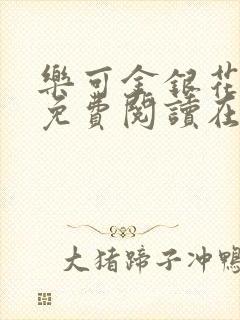 樂可金銀花
免費閱讀在
大猪蹄子冲鴨